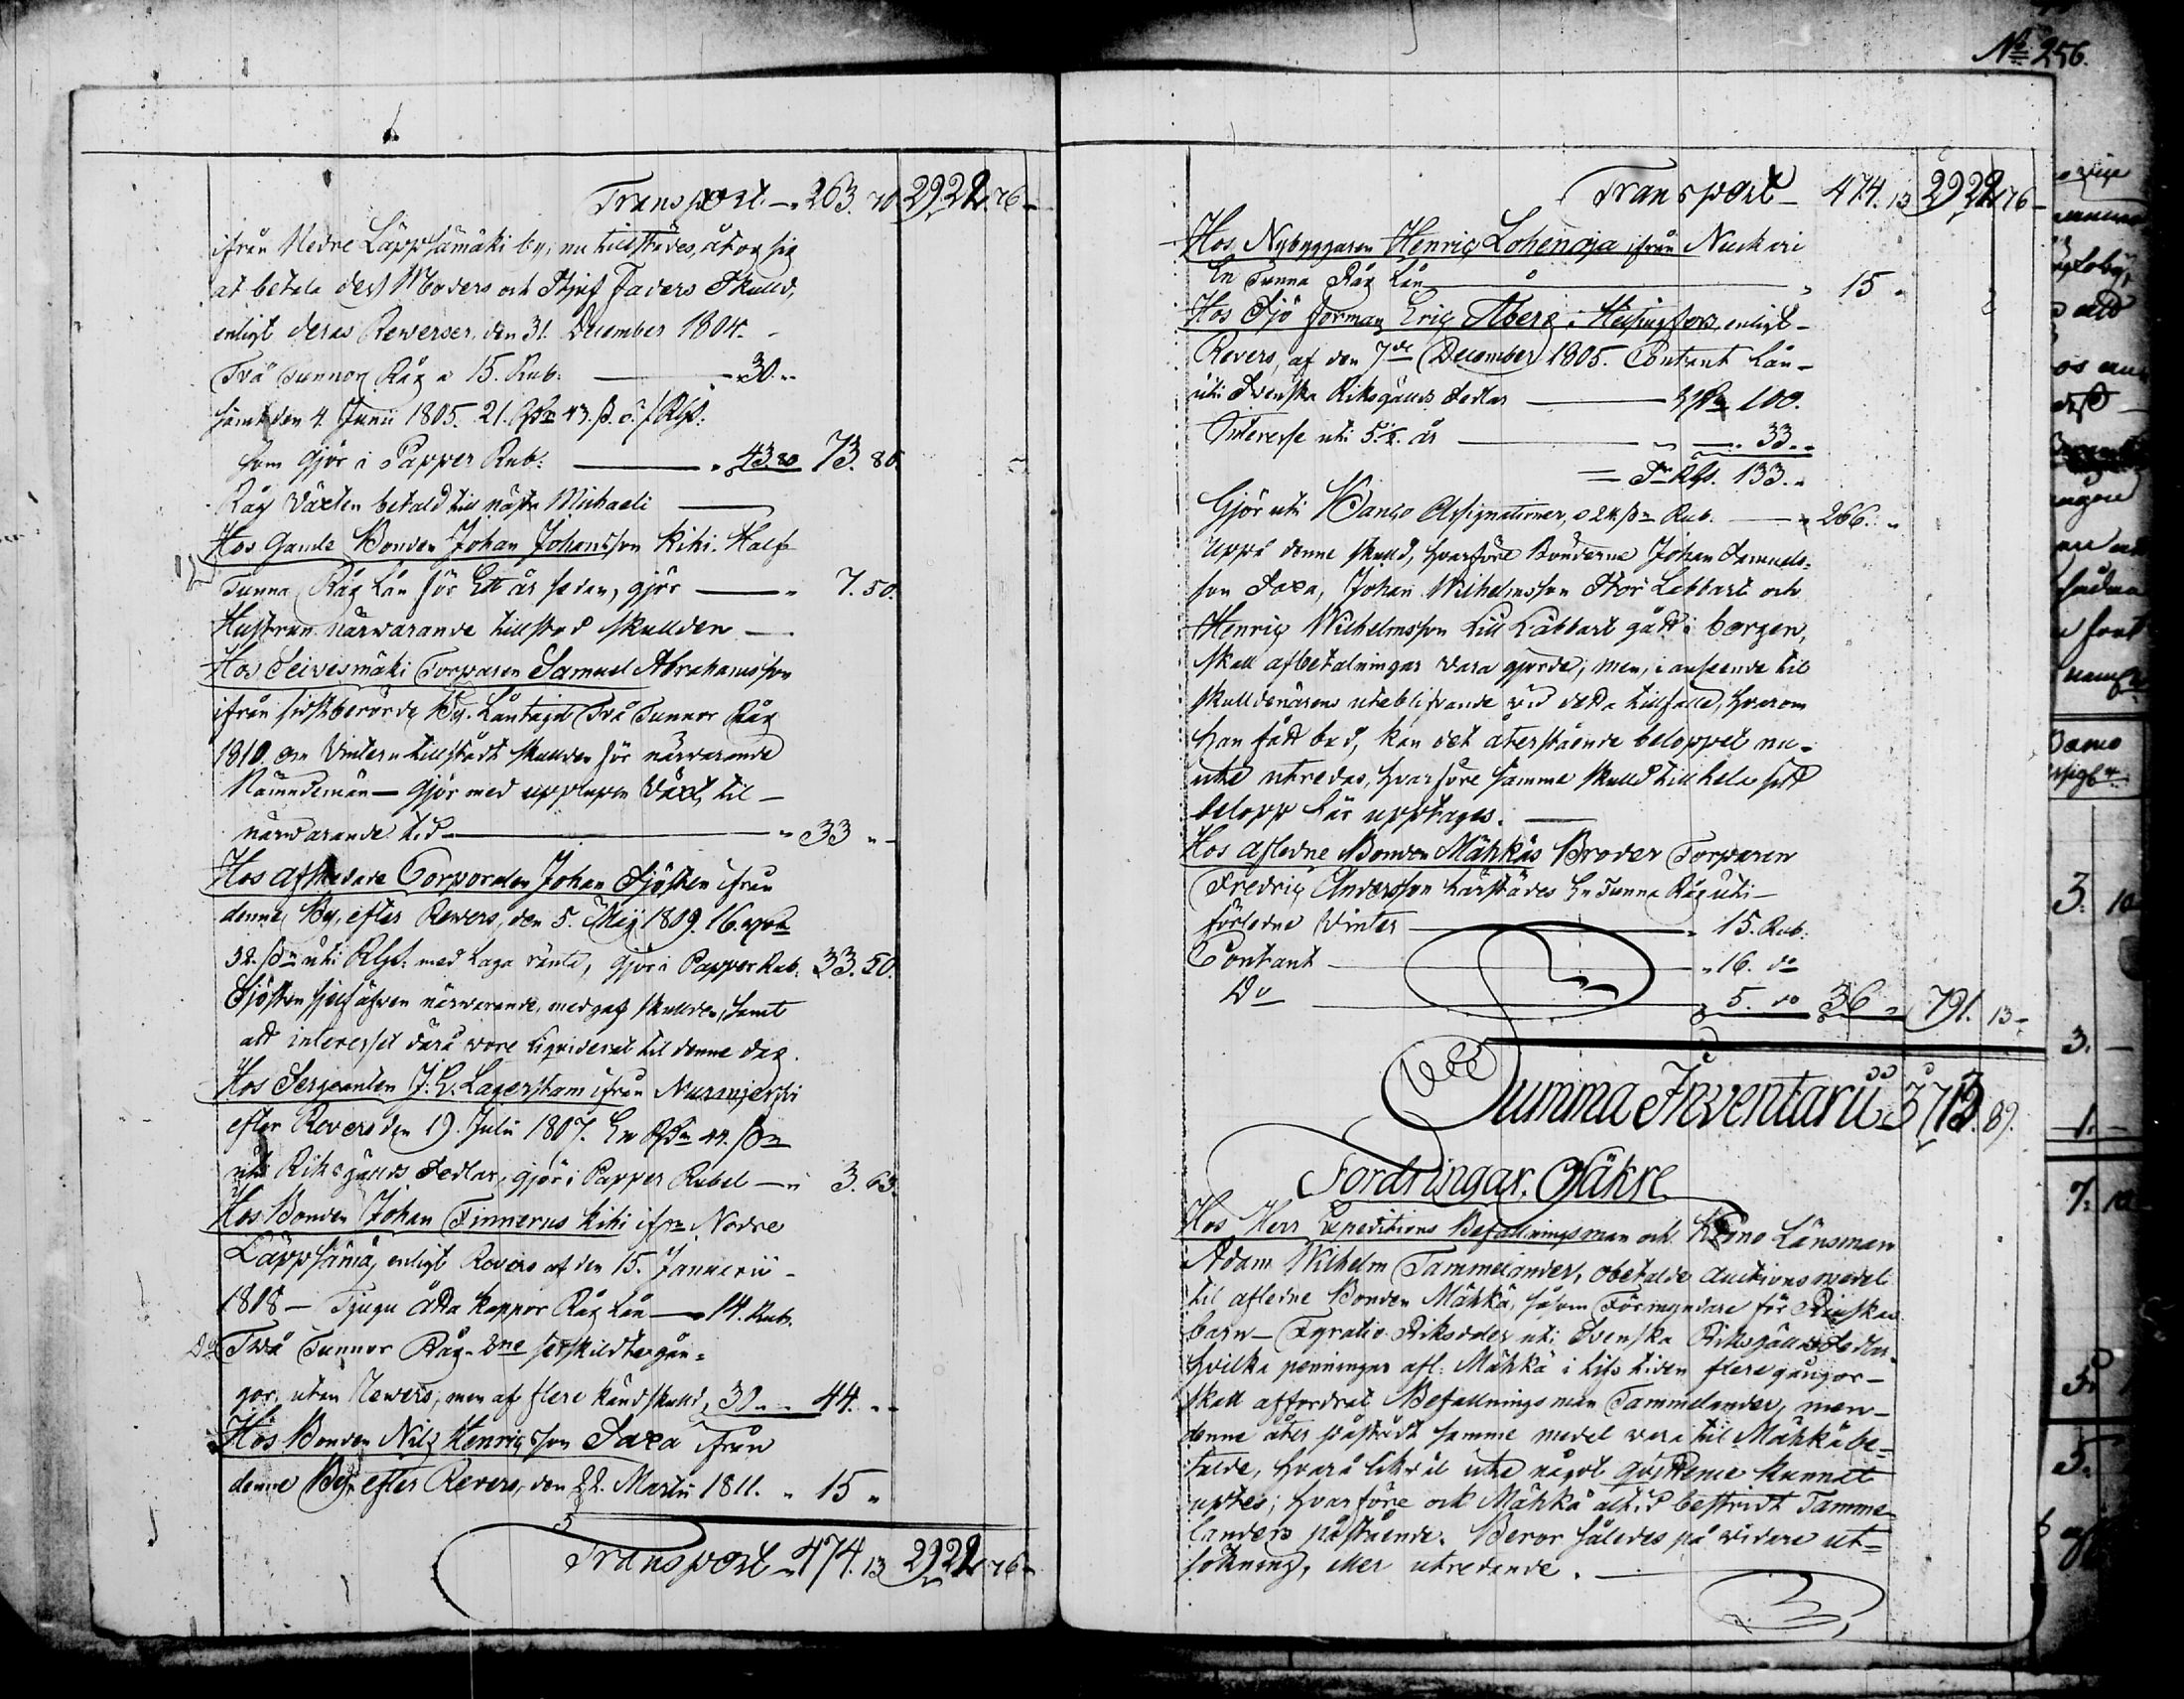 Nº 256.
Transport — 263. 70 2922. 76
ifrån Nedre Läppsämäki by, nu tillstädes, åtog sig
at betala dess Moders och Styf Faders Skuld,
enligt deras Reverser, den 31. December 1804. —
Två Tunnor Råg a 15. Rub: — 30. "
samt den 4. Junii 1805. 21. Rdr 43. ß.
som gjör i Papper Rub: — " 43. 80 73. 80.
Råg Växten betald till nästa Michaeli —
Hos Gamle Bonden Johan Johansson Kihi. Half
Tunna Råg Lån för Ett år sedan, gjör — " 7. 50.
Hustrun närvarande tillstod skulden —
Hos Seivesmäki Torparen Samuel Abrahamsson
ifrån sistberörde By. Låntagit Två Tunnor Råg
1810. om Vintern tillstådt skulden för närvarande
Nämndemän — gjör med upplupen Växt, til —
närvarande tid — " 33 "
Hos afskedade Corporalen Johan Sjösten ifrån
denne By, efter Revers, den 5. Maij 1809. 16.
32. ß uti Rgs. med Laga ränta, gjör i Papper Rub. 33. 50.
Sjösten sjelf äfven närvarande, medgaf skulden, samt
att interesset därå vore liquiderat til denne dag.
Hos Sergeanten J: G. Lagerstam ifrån Nurmijervi
efter Revers den 19. Julii 1807. En Rdr 44. ß
uti Riksgälds Sedlar, gjör i Papper Rubel — " 3. 63.
Hos Bonden Johan Finnerus Kihi ifrn Nedre
Läppsämä, enligt Revers af den 15. Januarii —
1808 — Tjugu åtta Kappor Råg Lån — 14. Rub.
Do Två Tunnor Råg 2ne särskildte gån=
gor, utan Revers, men af flere känd skuld, 30 " " 44. "
Hos Bonden Nils Henricsson Saxa ifrån
denne By, efter Revers, den 22. Martii 1811. " 15 "
Transport — 474. 13 2922. 76
Transport — 474. 13 2922 76
Hos Nybyggaren Henric Lohenoja ifrån Nuckari
En Tunna Råg Lån — " 15 "
Hos Sjö forman Eric Åberg i Helsingfors, enligt —
Revers, af den 7de December 1805. Contant Lån —
uti Svenska Riksgälds Sedlar — 100.
Interesse uti 5½. år — " — 33. "
= Rgs. 133. "
Gjör uti Banco Assignationer, a 24 ß Rub. — " 266. "
Uppå denne skuld, hvarföre Bönderne Johan Samuels=
son Saxa, Johan Wilhelmsson Stor Labbart och
Henric Wilhelmsson Lill Labbart gådt i borgen,
skall afbetalningar vara gjorde; men, i anseende til
skuldenärens uteblifvande vid detta tillfälle, hvarom
han fådt bud, kan det återstående beloppet nu —
icke utredas, hvarföre samma skuld till hela sitt
belopp här upptages. —
Hos afledne Bonden Mähkäs Broder Torparen
Fredric Andersson härstädes En Tunna Råg uti —
förledne Vinter — " 15. Rub:
Contant — " 16. do
Do — " 5. do 36 " 791. 13
Summa Inventarii 3713. 89.
Fordringar. Osäkre
Hos Herr Expeditions Befallningsman och Krono Länsman
Adam Wilhelm Tammelander, obetalde Auctions medel
til afledne Bonden Mähkä, såsom Förmyndare för
barn — Fyratio Riksdaler uti Svenska Riksgälds Sedlar
hvilka penningar afl: Mähkä i lifs tiden flere gångor —
skall affordrat Befallningsman Tammelander, men —
denne åter påstådt samme medel vara til Mähkä be=
talde, hvarå likväl icke något qvittence kunnat
uptes; hvarföre ock Mähkä altid bestridt Tamme=
landers påstående. Beror således på vidare ut=
sökning, eller utredande. —